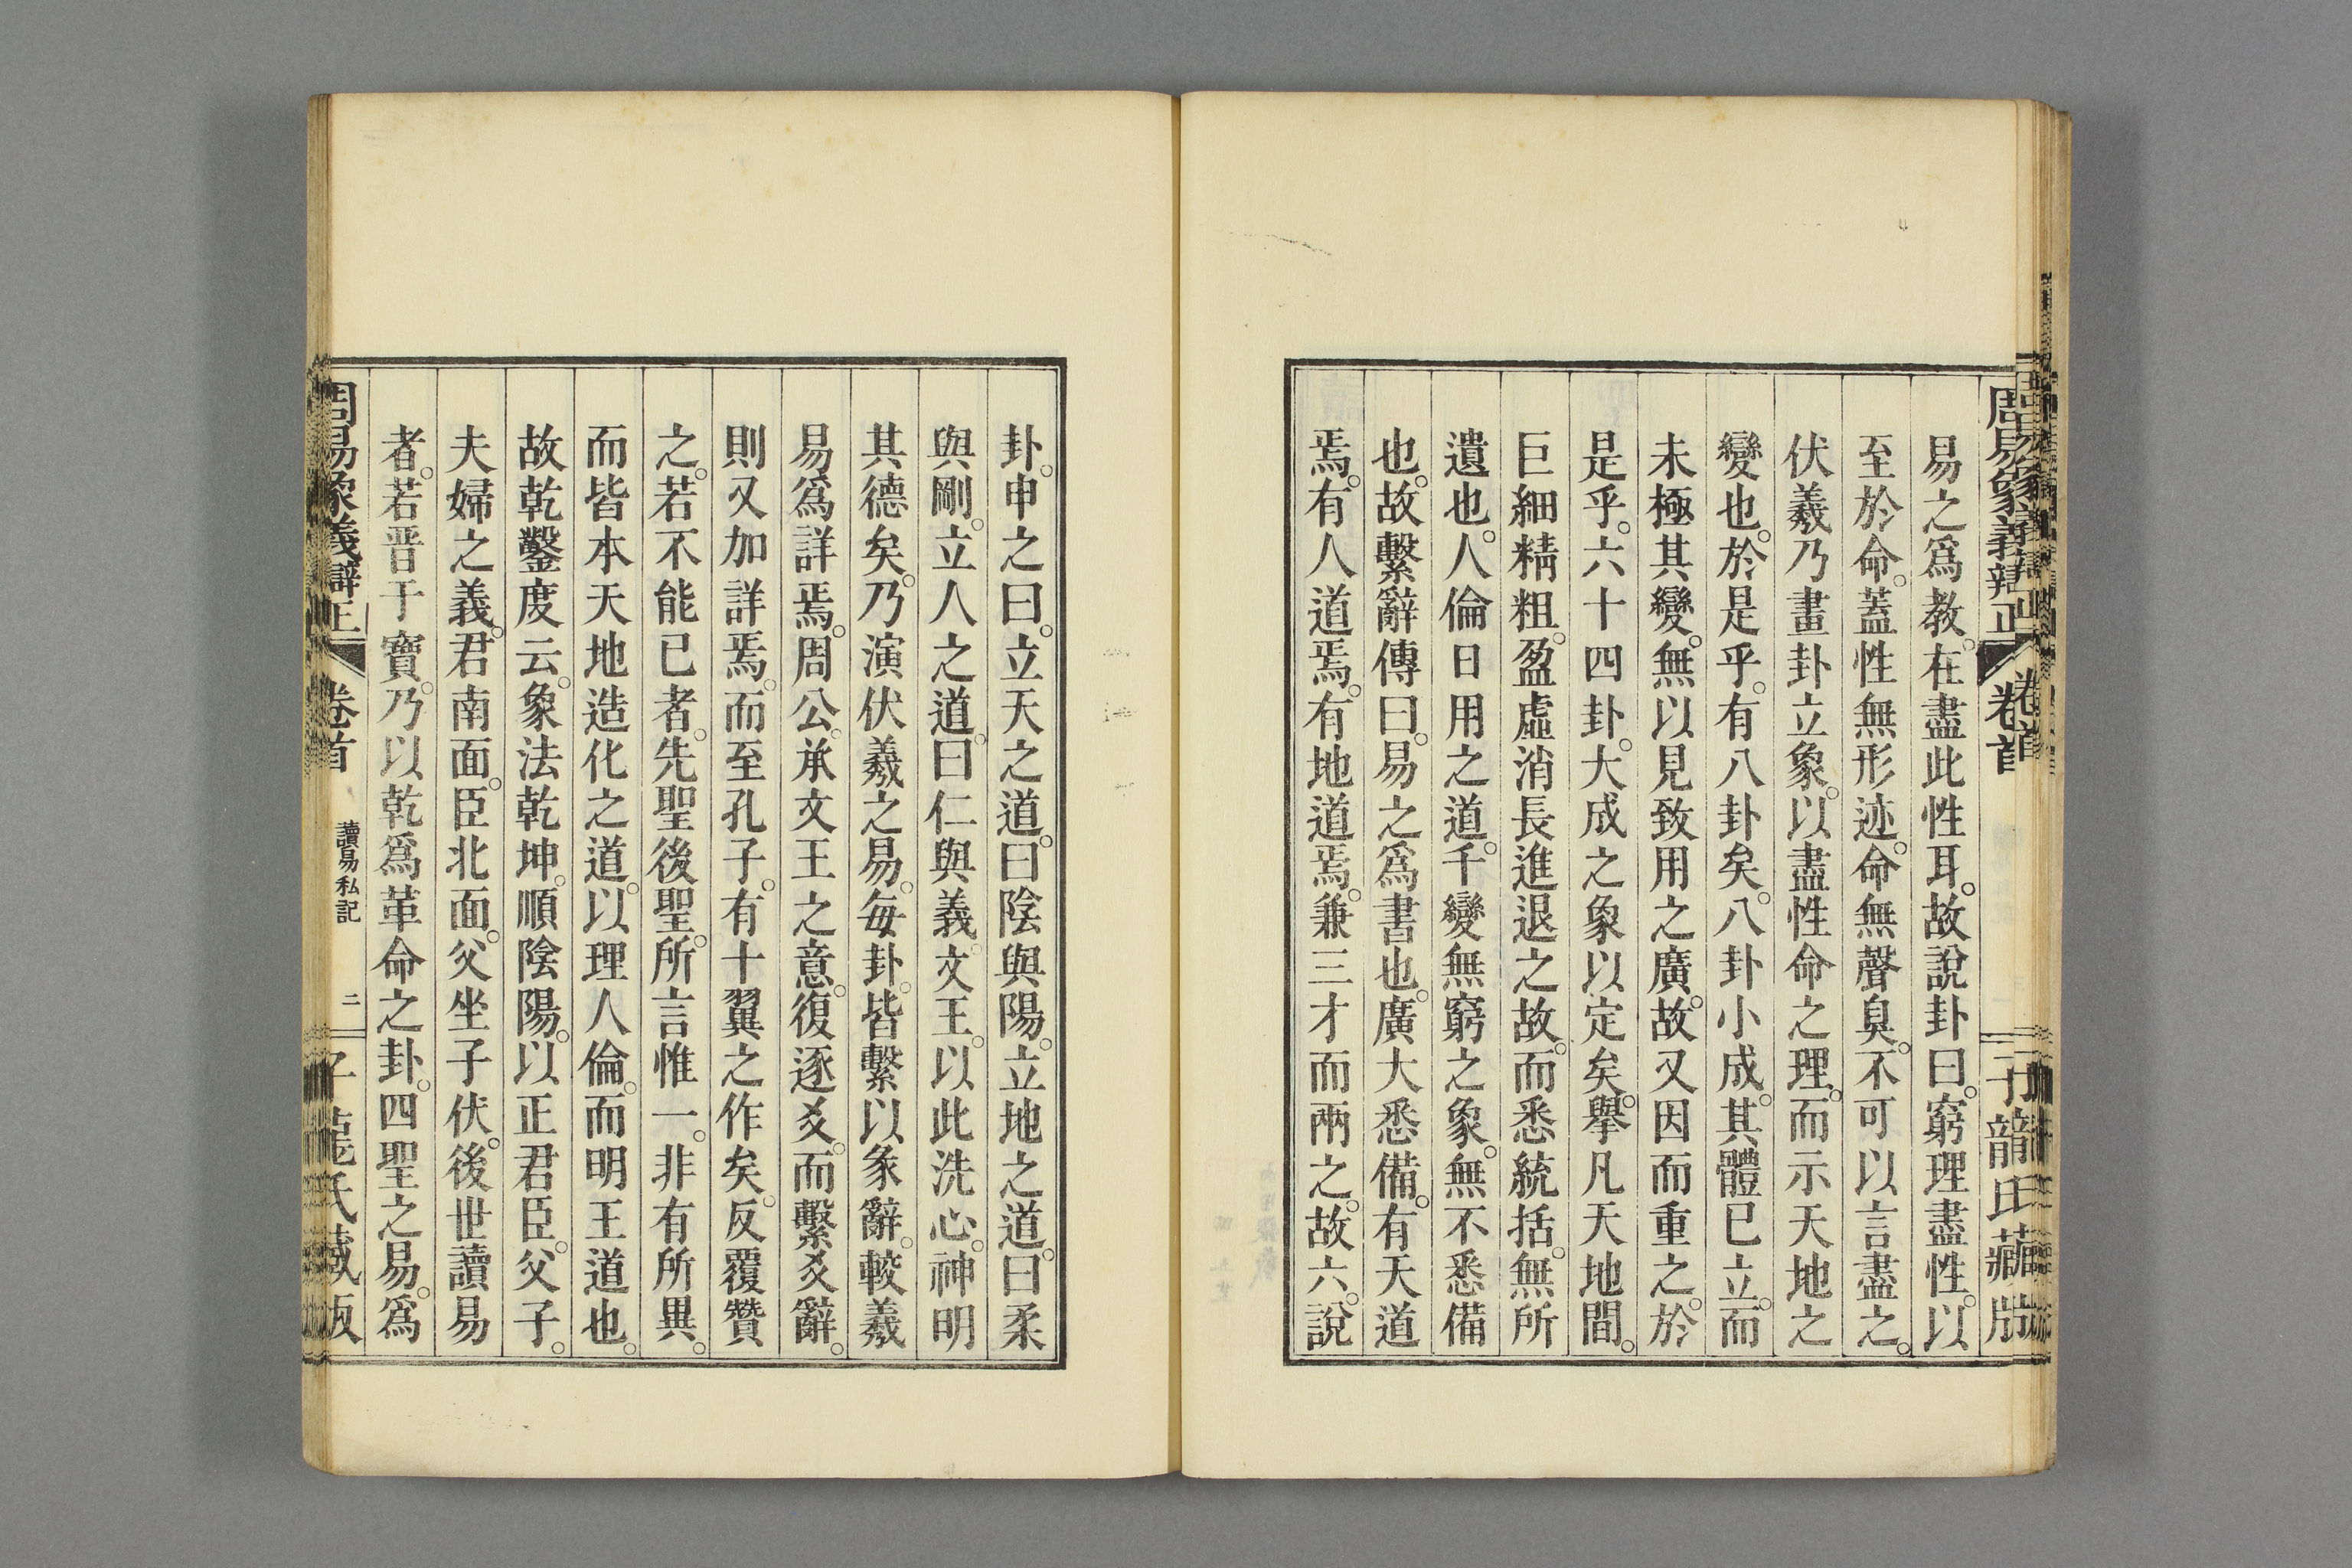 周易象義辯正 卷首 子龍氏藏版
易之爲教。在盡此性耳。故說卦曰。窮理盡性。以
至於命。蓋性無形迹。命無聲臭。不可以言盡之。
伏羲乃畫卦立象。以盡性命之理。而示天地之
變也。於是乎。有八卦矣。八卦小成。其體已立。而
未極其變。無以見致用之廣。故又因而重之。於
是乎。六十四卦。大成之象以定矣。擧凡天地間。
巨細精粗。盈虛消長進退之故。而悉統括。無所
遺也。人倫日用之道。千變無窮之象。無不悉備
也。故繫辭傳曰。易之爲書也。廣大悉備。有天道
焉。有人道焉。有地道焉。兼三才而兩之。故六。說
卦。申之曰。立天之道。曰陰與陽。立地之道。曰柔
與剛。立人之道。曰仁與義。文王。以此洗心。神明
其德矣。乃演伏羲之易。每卦。皆繫以彖辭。較羲
易爲詳焉。周公。承文王之意。復逐爻。而繫爻辭。
則又加詳焉。而至孔子。有十翼之作矣。反覆贊
之。若不能已者。先聖後聖。所言惟一。非有所異。
而皆本天地造化之道。以理人倫。而明王道也。
故乾鑿度云。象法乾坤。順陰陽。以正君臣。父子。
夫婦之義。君南面。臣北面。父坐子伏。後世讀易
者。若晋于寶。乃以乾爲革命之卦。四聖之易。爲
周易象義辯正 卷首 讀易私記 二 子龍氏藏版